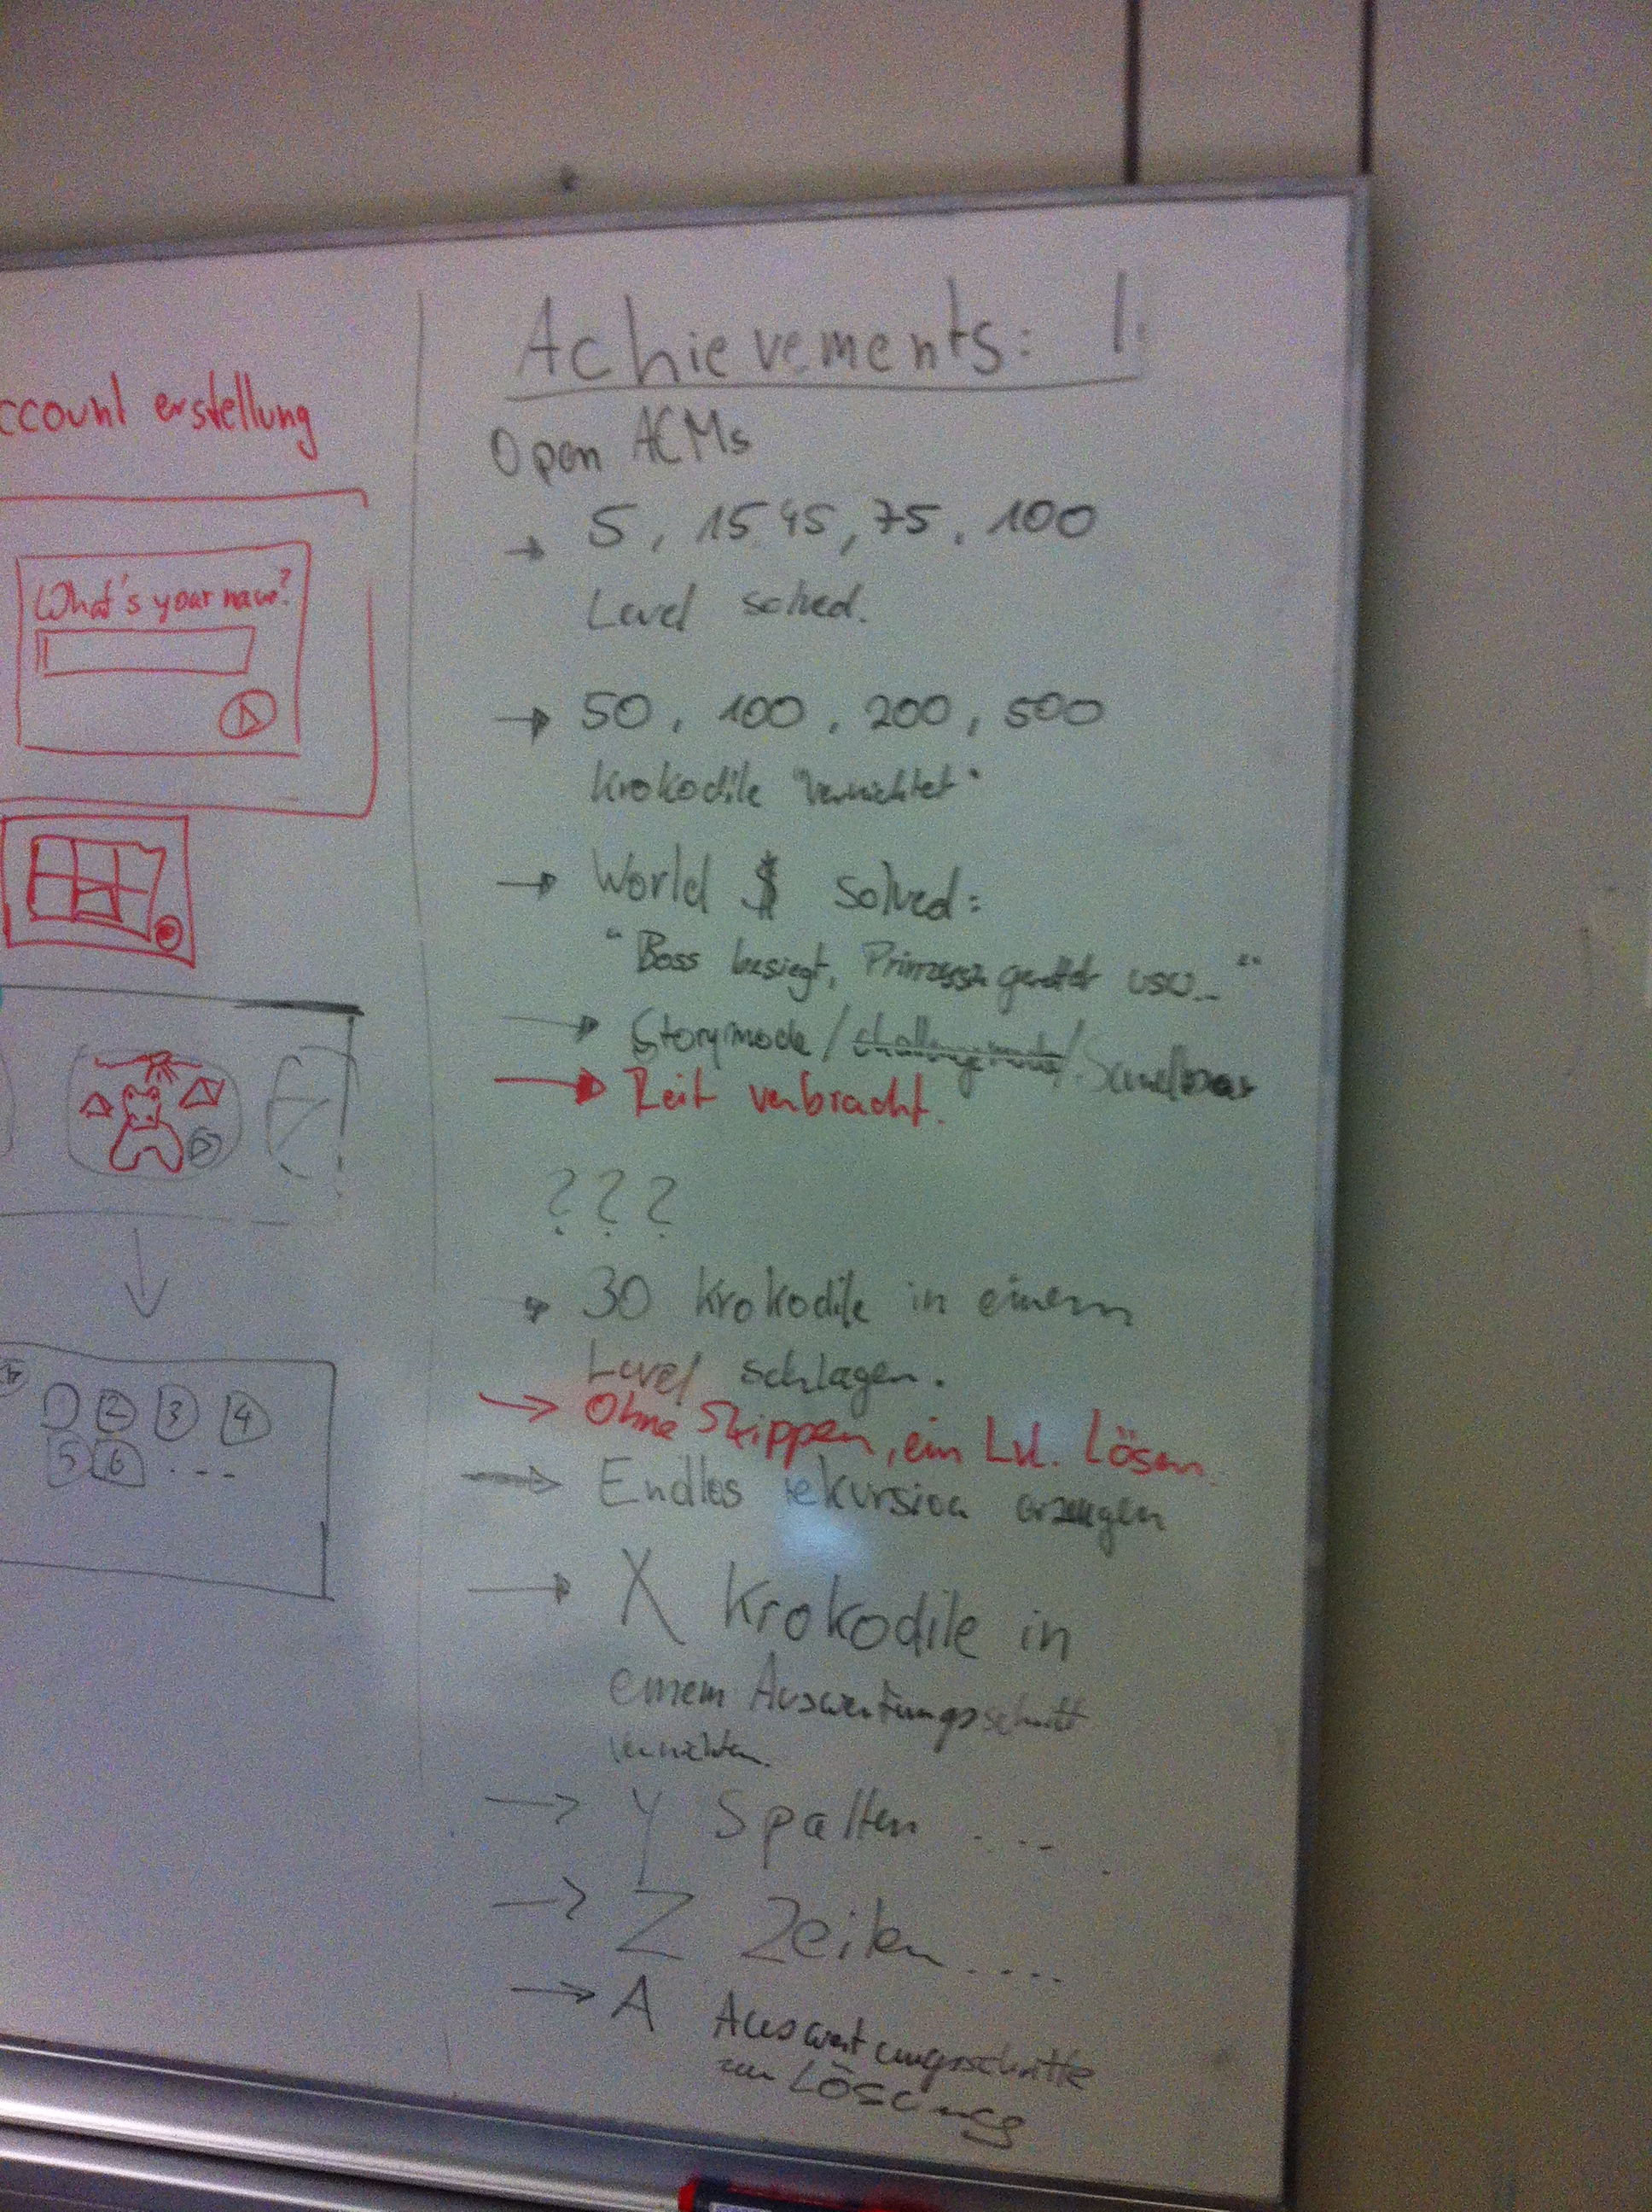 ccount erstellung
What's your name?
1 2 3 4
5 6 ...
Achievements: 1.
Open ACMs
→ 5, 15 45, 75, 100
Level solved.
→ 50, 100, 200, 500
Krokodile "vernichtet"
→ World $ solved:
"Boss besiegt, Prinzessin gerettet usw..."
→ Storymode / challengemode /
→ Zeit verbracht.
???
→ 30 Krokodile in einem
Level schlagen.
→ Ohne Skippen, ein Lvl. Lösen.
→ Endlos rekursion erzeugen
→ X Krokodile in
einem Auswertungsschritt
vernichten.
→ Y Spalten ....
→ Z Zeilen ....
→ A Auswertungsschritte
zur LÖSUNG